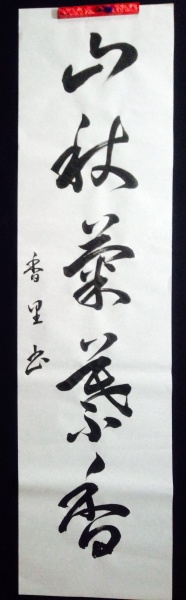 山秋菊葉香
香里书